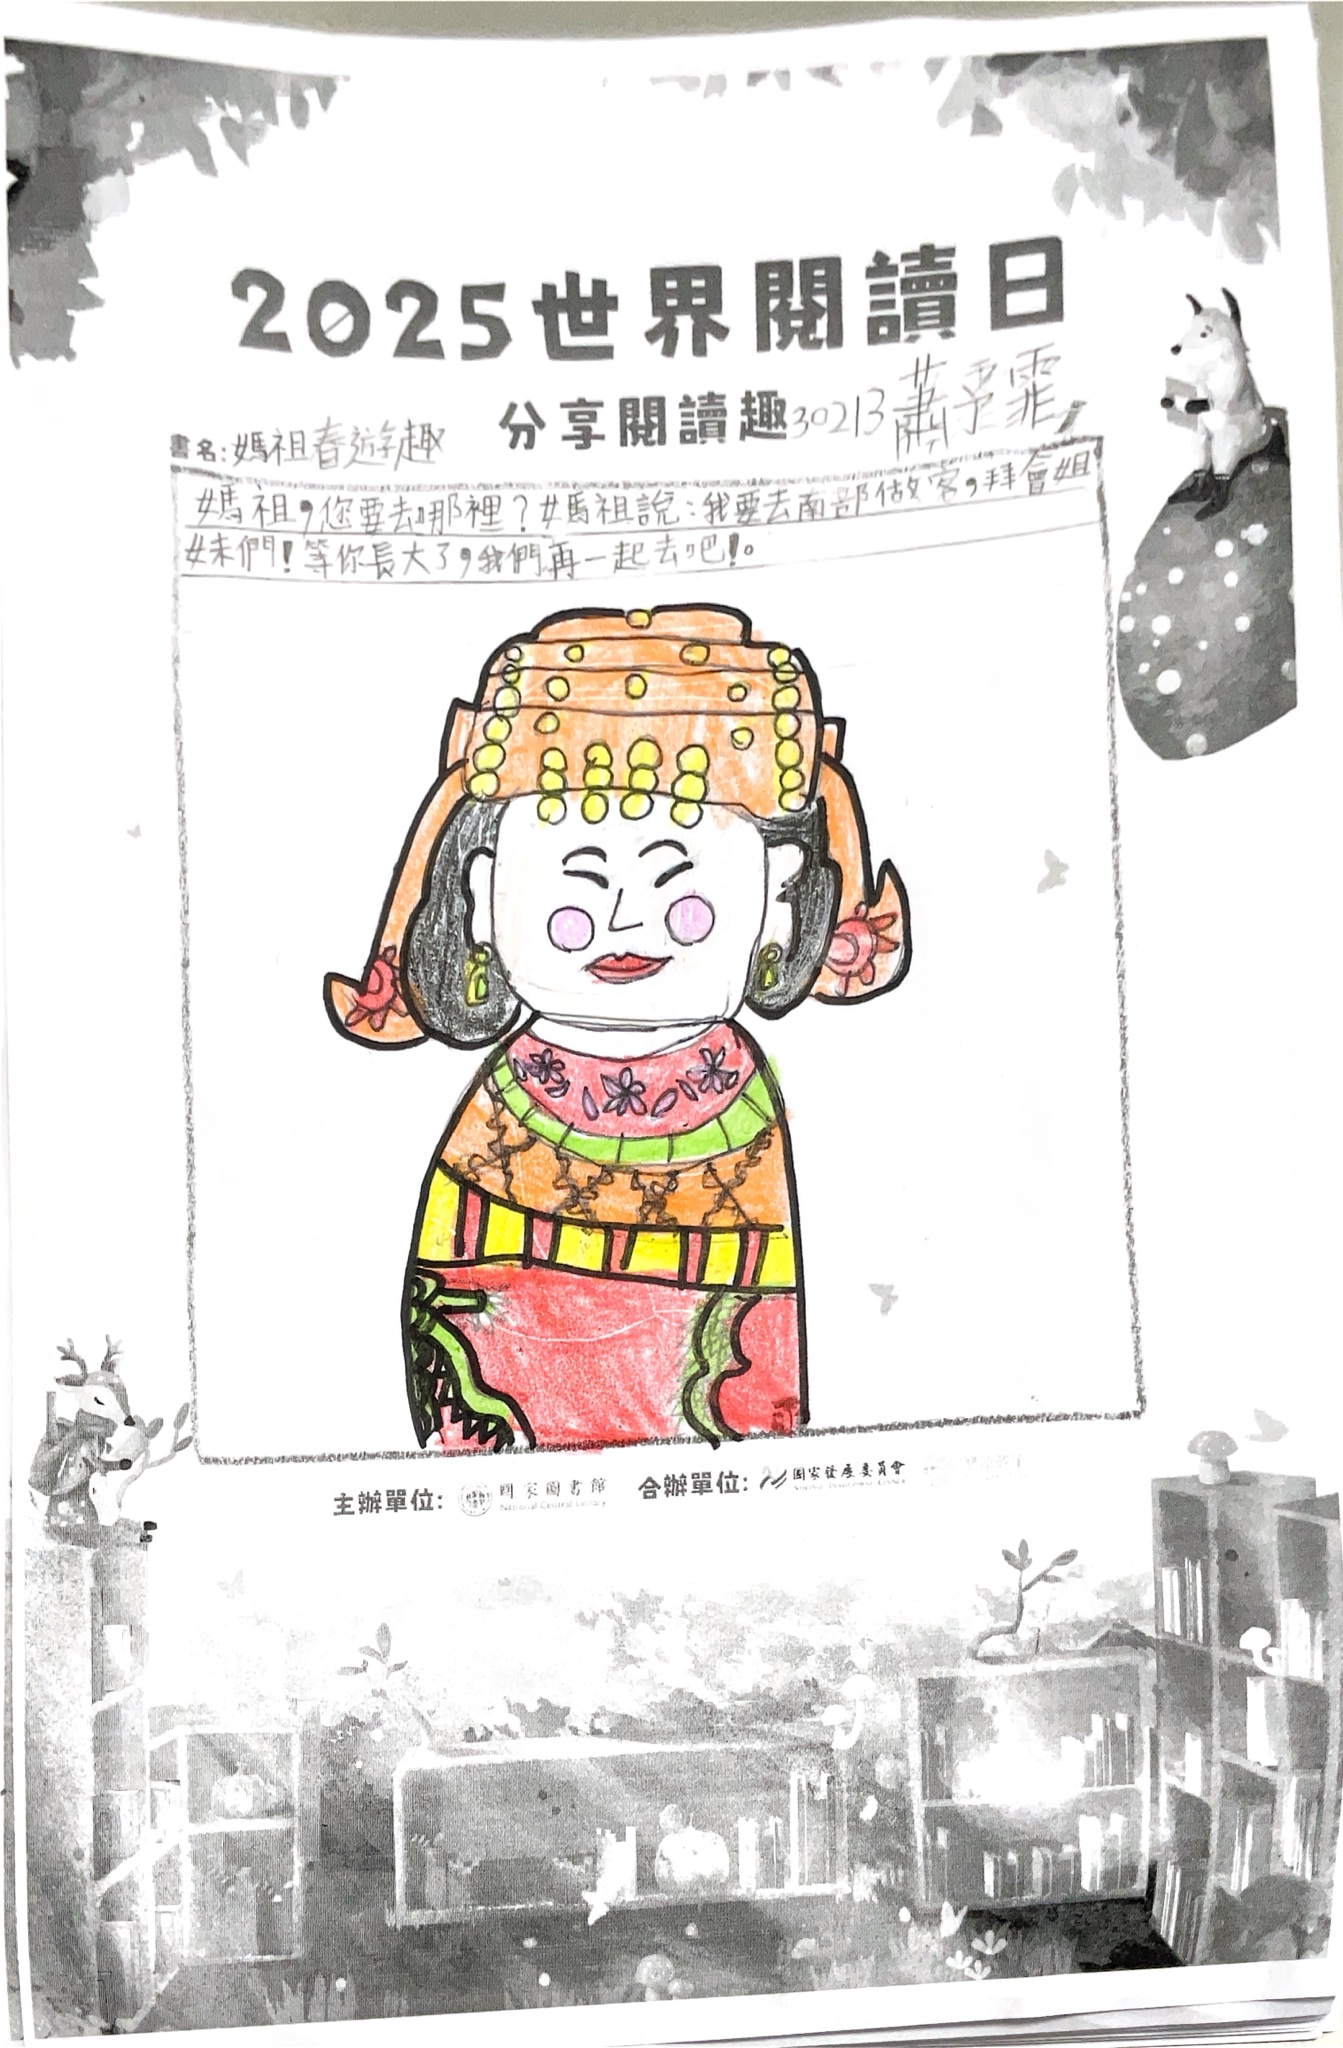 2025世界閱讀日
分享閱讀趣
30213蕭予霏
書名:媽祖春遊趣
媽祖,您要去哪裡?媽祖說:我要去南部做客,拜會姐
妹們!等你長大了,我們再一起去吧!。
主辦單位: 國家圖書館 合辦單位: 國家發展委員會
National Central Library